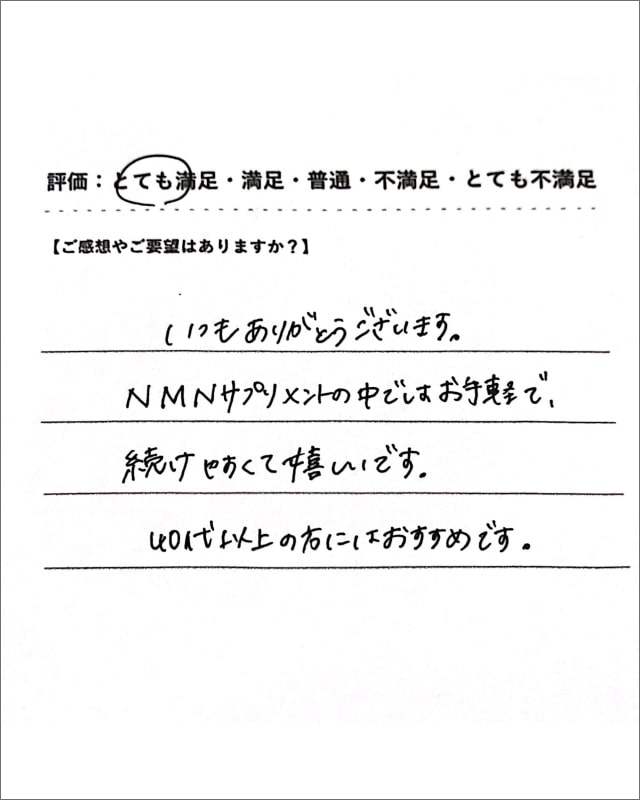 評価：とても満足・満足・普通・不満足・とても不満足
【ご感想やご要望はありますか？】
いつもありがとうございます。
NMNサプリメントの中ではお手軽で、
続けやすくて嬉しいです。
40代以上の方にはおすすめです。